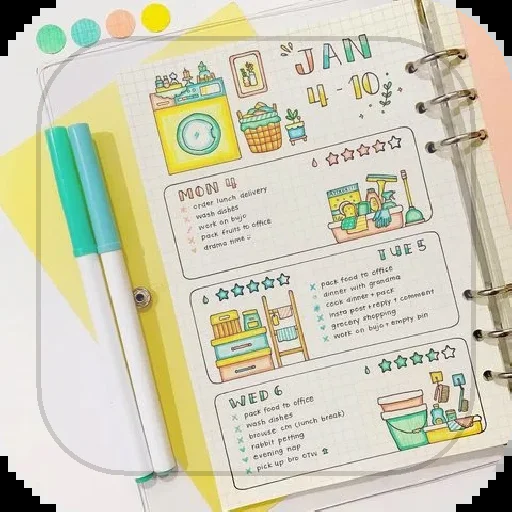 JAN
4 - 10
MON 4
order lunch delivery
wash dishes
work on bujo
pack fruits to office
drama time :)
TUE 5
pack food to office
dinner with grandma
cook dinner + pack
insta post + reply + comment
grocery shopping
work on bujo + empty pin
WED 6
pack food to office
wash dishes
browse cm (lunch break)
rabbit petting
evening nap
pick up bro OTW